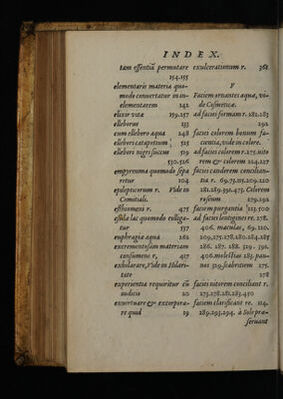 INDEX.
tam essentiã permutare
154.155
elementaris materia quo-
modo conuertatur in in-
elementarem 142
elixir vitæ 199.257
elleborus 133
cum elleboro aqua 248
ellebori catapotium 525
ellebori nigri succus 519
530.526
empyreuma quomodo sepa
retur 104
epilepticorum r. Vide in
Comitiali.
esthiomeni r. 475
esula lac quomodo colliga-
tur 537
euphragiæ aqua 262
excrementosam materiam
consumens r. 427
exhilarare, Vide in Hilari-
tate
experientia requiritur cũ
iudicio 20
exuertuare & extorpora-
re quid 19
exulcerationum r. 361
F
Faciem ornantes aquæ, vi-
de Cosmetica.
ad facies formam r. 282.283
292
facies colorem bonum fa-
cientia, vide in colore.
ad facies colorem r. 175. nito
rem & colorem 224.227
facies candorem concilian-
tia r. 69.75.205.209.210
281.289.391.475. Colorem
roseum 279.292
faciem purgantia 212.500
ad faciei lentigines re. 278.
406. maculas, 69. 210.
209.275.278.280.284.285
286. 287. 288. 529. 392.
406. molestias 285. pan-
nos 529. scabritiem 275.
278
faciei nitorem conciliant r.
275.278.281.283.450
faciem clarificant re. 214.
289.293.294. à Sole præ-
seruant